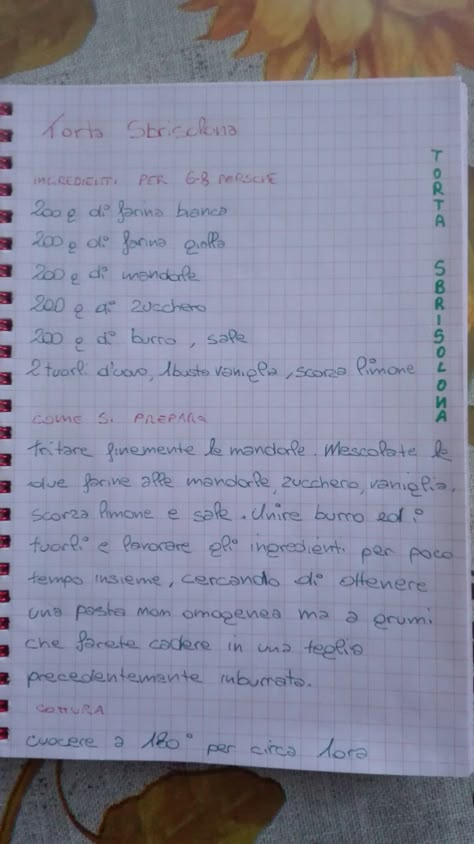 Torta Sbrisolona
INGREDIENTI PER 6-8 PERSONE
200 g di farina bianca
200 g di farina gialla
200 g di mandorle
200 g di zucchero
200 g di burro, sale
2 tuorli d'uovo, 1 busta vaniglia, scorza limone
COME SI PREPARA
tritare finemente le mandorle. Mescolate le
due farine alle mandorle, zucchero, vaniglia,
scorza limone e sale. Unire burro ed i
tuorli e lavorare gli ingredienti per poco
tempo insieme, cercando di ottenere
una pasta non omogenea ma a grumi
che farete cadere in una teglia
precedentemente imburrata.
COTTURA
cuocere a 180° per circa 1 ora
TORTA SBRISOLONA